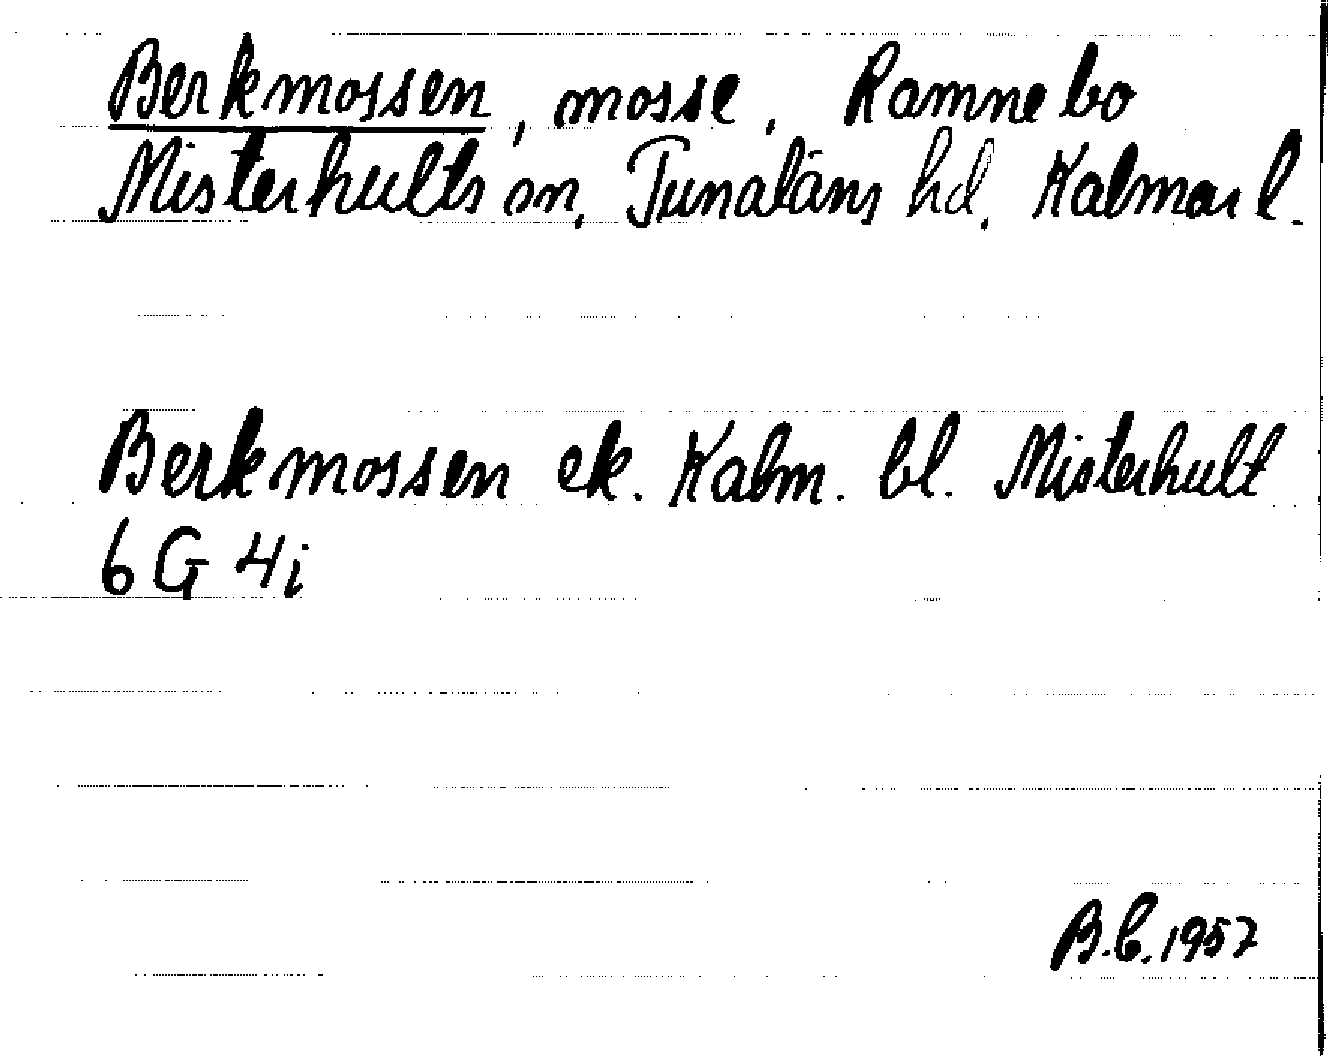 Berkmossen, mosse, Ramnebo
Misterhults sn, Tunaläns hd, Kalmar l.
Berkmossen ek. Kalm. bl. Misterhult
6 G 4i
B.C. 1957